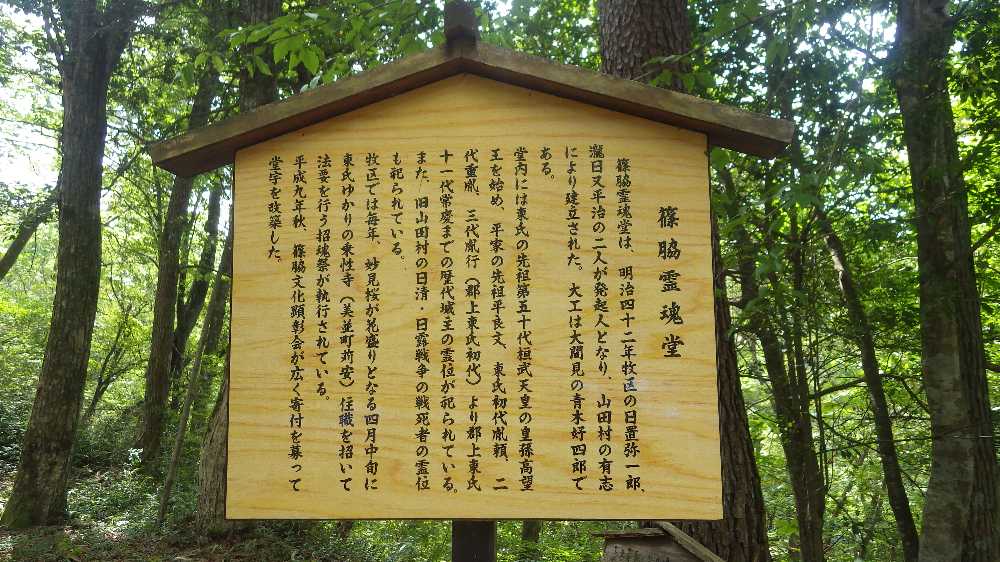 篠脇霊魂堂
篠脇霊魂堂は、明治四十二年牧区の日置弥一郎、
瀧日又平治の二人が発起人となり、山田村の有志
により建立された。大工は大間見の青木好四郎で
ある。
堂内には東氏の先祖第五十代桓武天皇の皇孫高望
王を始め、平家の先祖平良文、東氏初代胤頼、二
代重胤、三代胤行（郡上東氏初代）より郡上東氏
十一代常慶までの歴代城主の霊位が祀られている。
また、旧山田村の日清・日露戦争の戦死者の霊位
も祀られている。
牧区では毎年、妙見桜が花盛りとなる四月中旬に
東氏ゆかりの乗性寺（美並町苅安）住職を招いて
法要を行う招魂祭が執行されている。
平成九年秋、篠脇文化顕彰会が広く寄付を募って
堂宇を改築した。